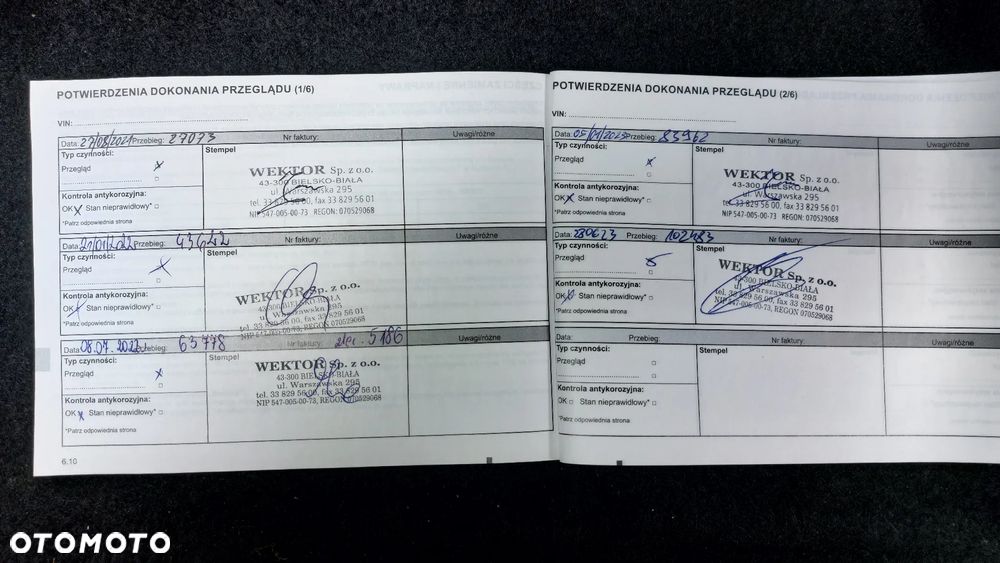 POTWIERDZENIA DOKONANIA PRZEGLĄDU (1/6)
VIN:
Data: 27/08/2021 Przebieg: 27073 Nr faktury: Uwagi/różne
Typ czynności: Stempel
Przegląd x
Kontrola antykorozyjna:
OK x Stan nieprawidłowy*
*Patrz odpowiednia strona
WEKTOR Sp. z o.o.
43-300 BIELSKO-BIAŁA
ul. Warszawska 295
tel. 33 829 56 00, fax 33 829 56 01
NIP 547-005-00-73 REGON: 070529068
Data: 21/01/2022 Przebieg: 43622 Nr faktury: Uwagi/różne
Typ czynności: Stempel
Przegląd x
Kontrola antykorozyjna:
OK Stan nieprawidłowy*
*Patrz odpowiednia strona
WEKTOR Sp. z o.o.
43-300 BIELSKO-BIAŁA
ul. Warszawska 295
tel. 33 829 56 00, fax 33 829 56 01
NIP 547-005-00-73, REGON 070529068
Data: 08.07.2022 Przebieg: 63778 Nr faktury: 5186 Uwagi/różne
Typ czynności: Stempel
Przegląd x
Kontrola antykorozyjna:
OK x Stan nieprawidłowy*
*Patrz odpowiednia strona
WEKTOR Sp. z o.o.
43-300 BIELSKO-BIAŁA
ul. Warszawska 295
tel. 33 829 56 00, fax 33 829 56 01
NIP 547-005-00-73, REGON: 070529068
6.10
POTWIERDZENIA DOKONANIA PRZEGLĄDU (2/6)
VIN:
Data: 05/01/2023 Przebieg: 83962 Nr faktury: Uwagi/różne
Typ czynności: Stempel
Przegląd x
Kontrola antykorozyjna:
OK x Stan nieprawidłowy*
*Patrz odpowiednia strona
WEKTOR Sp. z o.o.
43-300 BIELSKO-BIAŁA
ul. Warszawska 295
tel. 33 829 56 00, fax 33 829 56 01
NIP 547-005-00-73 REGON: 070529068
Data: 280623 Przebieg: 102483 Nr faktury: Uwagi/różne
Typ czynności: Stempel
Przegląd
Kontrola antykorozyjna:
OK Stan nieprawidłowy*
*Patrz odpowiednia strona
WEKTOR Sp. z o.o.
43-300 BIELSKO-BIAŁA
ul. Warszawska 295
tel. 33 829 56 00, fax 33 829 56 01
NIP 547-005-00-73, REGON: 070529068
Data: Przebieg: Nr faktury: Uwagi/różne
Typ czynności: Stempel
Przegląd
Kontrola antykorozyjna:
OK Stan nieprawidłowy*
*Patrz odpowiednia strona
OTOMOTO